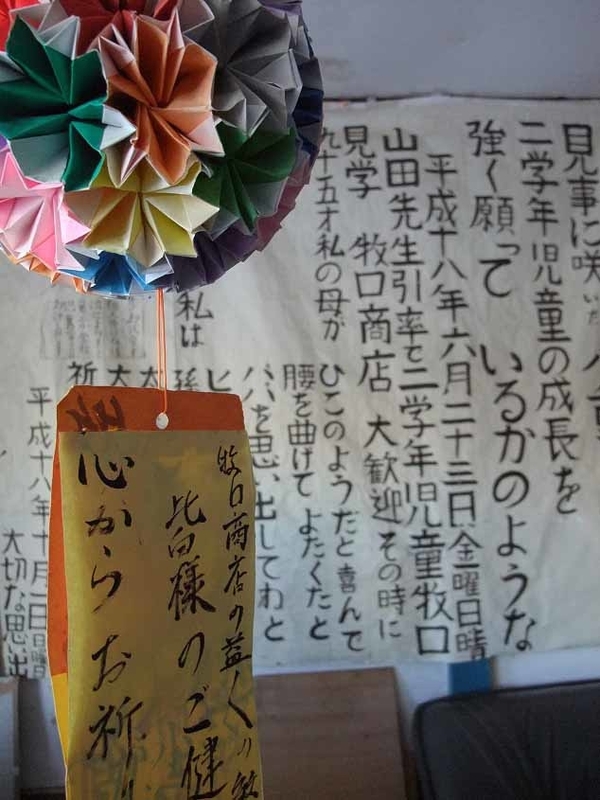 見事に咲いた
二学年児童の成長を
強く願っているかのような
平成十八年六月二十三日金曜日晴
山田先生引率で二学年児童牧口
見学 牧口商店 大歓迎その時に
九十五才私の母が ひこのようだと喜んで
腰を曲げて よたくたと
を思い出してわと
私は 孫
大
祈
平成十八年十月
大切な思い出
牧口商店の益々の
皆様のご健
心からお祈り